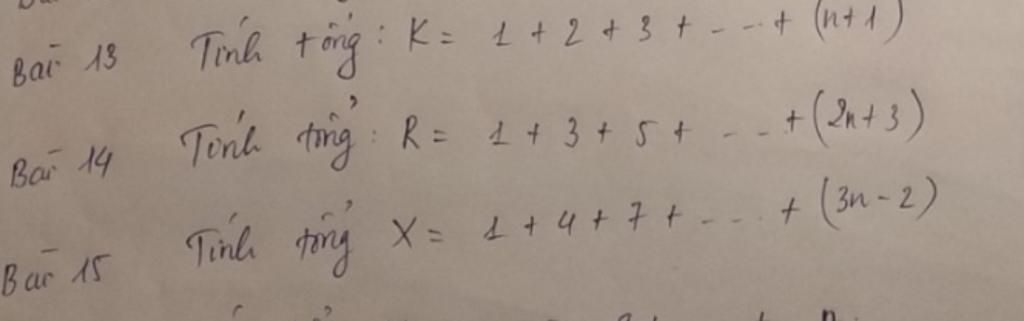 Bài 13 Tính tổng: K = 1 + 2 + 3 + ... + (n+1)
Bài 14 Tính tổng: R = 1 + 3 + 5 + ... + (2n+3)
Bài 15 Tính tổng X = 1 + 4 + 7 + ... + (3n-2)